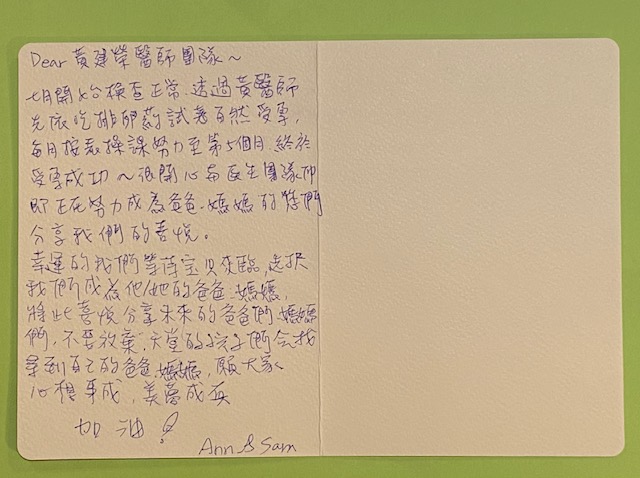 Dear 黃建榮醫師團隊~
七月開始檢查正常.透過黃醫師
先依吃排卵葯試著自然受孕,
每月按表操課努力至第5個月終於
受孕成功~很開心與醫生團隊和
即正在努力成為爸爸.媽媽的您們
分享我們的喜悅。
幸運的我們等待宝貝來臨,選擇
我們成為他/她的爸爸.媽媽,
將此喜悅分享未來的爸爸們媽媽
們,不要放棄.天堂的孩子們会找
尋到自己的爸爸.媽媽,願大家
心想事成,美夢成真
加油!
Ann & Sam